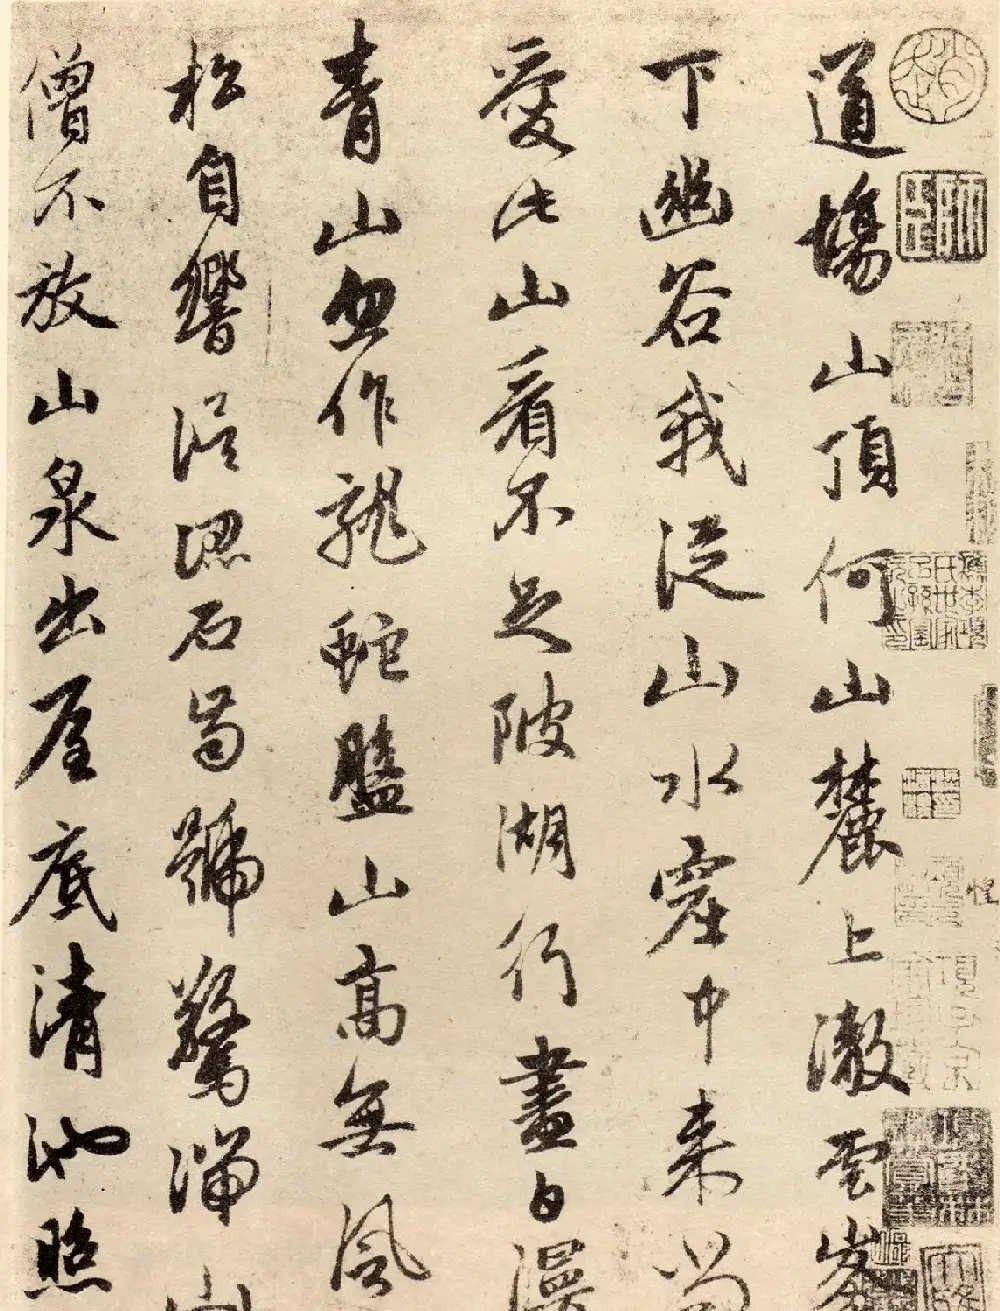 道場山頂何山麓上澈雲峯
下幽谷我從山水窟中來尚
愛此山看不足陂湖行盡白漫
青山忽作龍蛇盤山高無風
松自響誤認石齒號驚湍山
僧不放山泉出屋底清池照